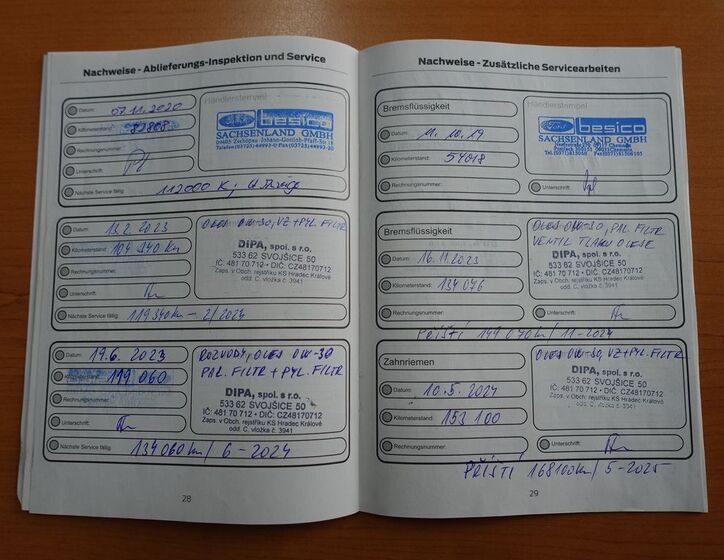 Nachweise - Ablieferungs-Inspektion und Service
Datum: 07.11.2020
Händlerstempel
Kilometerstand: 82808
Ford besico
SACHSENLAND GMBH
09405 Zschopau Johann-Gottlob-Pfaff-Str 18
Rechnungsnummer:
Unterschrift:
Nächste Service fällig: 112000 K
Datum: 13.2.2023
OLEJ 0W-30, VZ + PYL. FILTR
Kilometerstand: 104 340 km
DIPA, spol. s r.o.
533 62 SVOJŠICE 50
IČ: 481 70 712 • DIČ: CZ48170712
Zaps. v Obch. rejstříku KS Hradec Králové
odd. C, vložka č. 3941
Rechnungsnummer:
Unterschrift:
Nächste Service fällig: 119 340 km - 2/2024
Datum: 19.6. 2023
ROZVODY, OLEJ 0W-30
PAL. FILTR + PYL. FILTR
Kilometerstand: 119 060
DIPA, spol. s r.o.
533 62 SVOJŠICE 50
IČ: 481 70 712 • DIČ: CZ48170712
Zaps. v Obch. rejstříku KS Hradec Králové
odd. C, vložka č. 3941
Rechnungsnummer:
Unterschrift:
Nächste Service fällig: 134 060 km / 6 - 2024
28
Nachweise - Zusätzliche Servicearbeiten
Bremsflüssigkeit
Händlerstempel
Ford besico
SACHSENLAND GMBH
Datum: 11.10.19
Kilometerstand: 54018
Rechnungsnummer:
Unterschrift:
Bremsflüssigkeit
OLEJ 0W-30, PAL. FILTR
VENTIL TLAKU OLEJE
Datum: 16.11.2023
DIPA, spol. s r.o.
533 62 SVOJŠICE 50
IČ: 481 70 712 • DIČ: CZ48170712
Zaps. v Obch. rejstříku KS Hradec Králové
odd. C, vložka č. 3941
Kilometerstand: 134 076
Rechnungsnummer:
Unterschrift:
PŘÍŠTÍ 149 070 km / 11-2024
Zahnriemen
OLEJ 0W-30, VZ + PYL. FILTR
Datum: 10.5.2024
DIPA, spol. s r.o.
533 62 SVOJŠICE 50
IČ: 481 70 712 • DIČ: CZ48170712
Zaps. v Obch. rejstříku KS Hradec Králové
odd. C, vložka č. 3941
Kilometerstand: 153 100
Rechnungsnummer:
Unterschrift:
PŘÍŠTÍ 168100 km / 5-2025
29